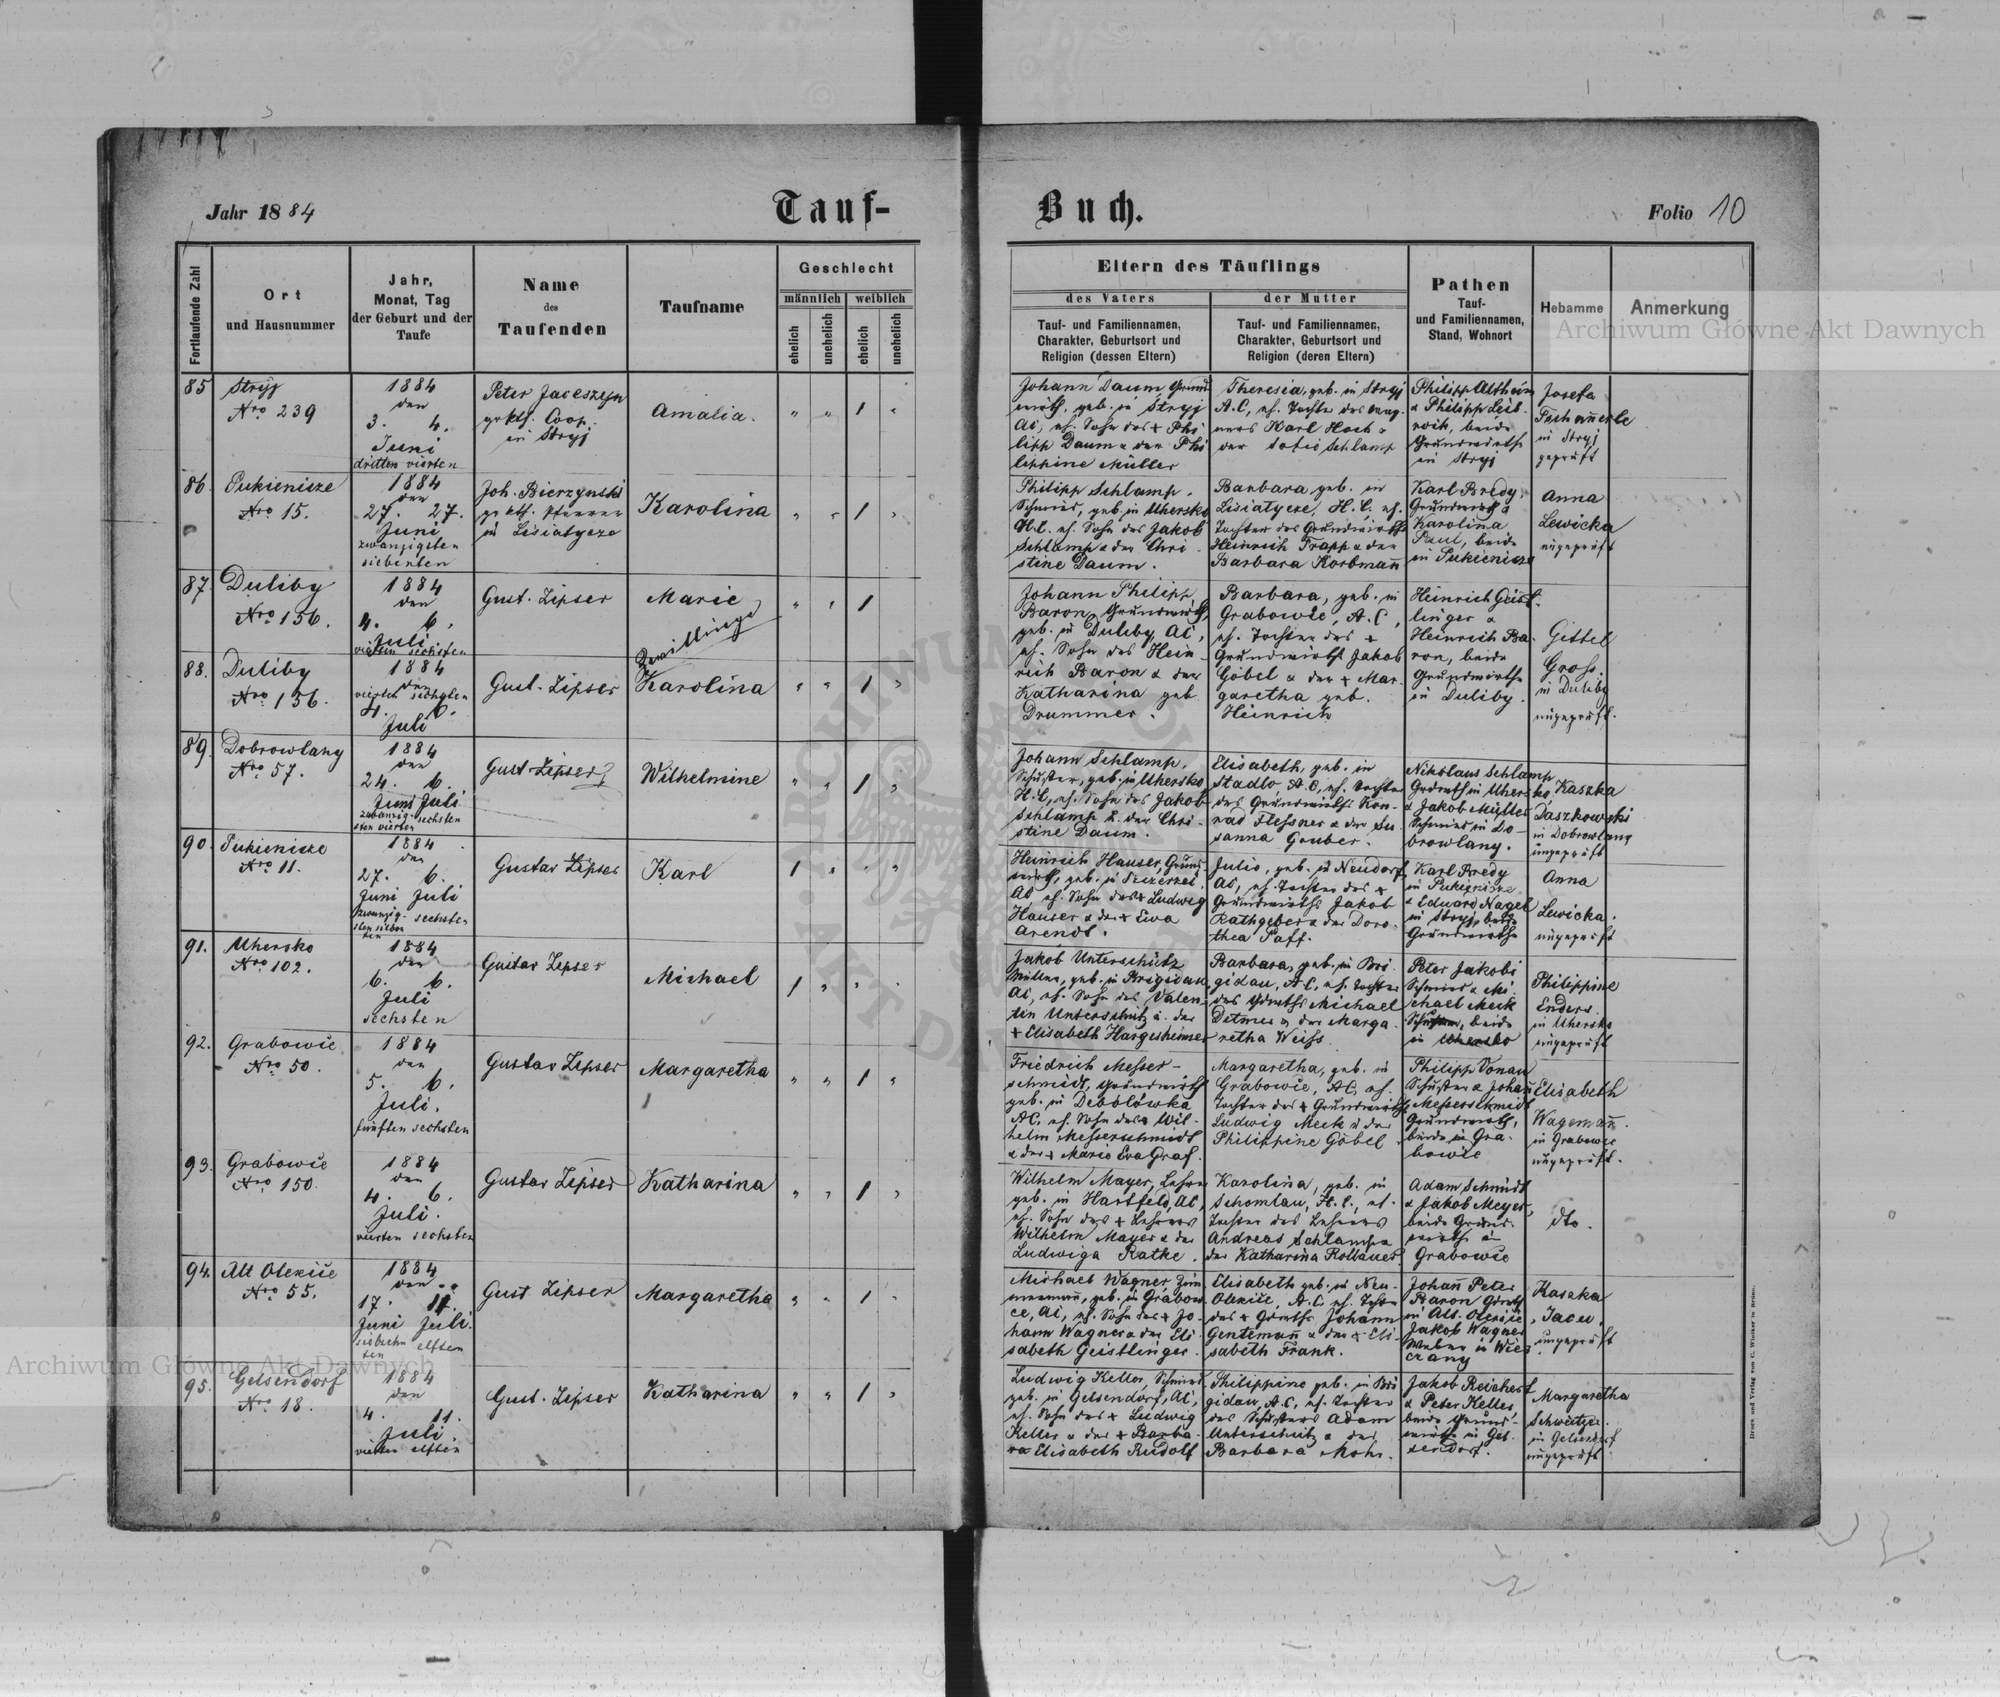 Jahr 1884
Tauf-
Buch.
Folio 10
Fortlaufende Zahl
Ort
und Hausnummer
Jahr,
Monat, Tag
der Geburt und der
Taufe
Name
des
Taufenden
Taufname
Geschlecht
männlich
weiblich
ehelich
unehelich
ehelich
unehelich
Eltern des Täuflings
des Vaters
der Mutter
Tauf- und Familiennamen,
Charakter, Geburtsort und
Religion (dessen Eltern)
Tauf- und Familiennamen,
Charakter, Geburtsort und
Religion (deren Eltern)
Pathen
Tauf-
und Familiennamen,
Stand, Wohnort
Hebamme
Anmerkung
Archiwum Główne Akt Dawnych
85
Stryj
Nro 239
1884
den
3. 4.
Juni
dritten vierten
Peter
in Stryj
Amalia.
" " 1 "
Johann Daum Grund
wirth, geb. in Stryj
AC, eh. Sohn des + Phi
lipp Daum & der Phi
lippine Müller
Theresia, geb. in Stryj
A.C, eh. Tochter des
Karl Hoch &
der Schlamp
Philipp Altheim
& Philipp Leib-
rock, beide
Grundwirthe
in Stryj
Josefa
in Stryj
geprüft
86.
Pukienicze
Nro 15.
1884
den
27. 27.
Juni
zwanzigsten
siebenten
Joh. Bierzynski
gr. kth. Pfarrer
in Lisiatycze
Karolina
" " 1 "
Philipp Schlamp.
Schmied, geb. in Uhersko
H.C. eh. Sohn des Jakob
Schlamp & der Chri-
stine Daum.
Barbara geb. in
Lisiatycze, H.C. eh.
Tochter des Grundwirths
Heinrich Trapp & der
Barbara Korbmañ
Karl Bredy,
Grundwirth &
Karolina
Paul, beide
in Pukienicze
Anna
Lewicka
ungeprüft
87.
Duliby
Nro 156.
1884
den
4. 6.
Juli
vierten sechsten
Gust. Zipser
Marie
Zwillinge
" " 1
Johann Philipp
Baron, Grundwirth,
geb. in Duliby, AC,
eh. Sohn des Hein-
rich Baron & der
Katharina geb.
Drummer.
Barbara, geb. in
Grabowie, A.C,
eh. Tochter des +
Grundwirths Jakob
Göbel & der + Mar-
garetha geb.
Heinrich
Heinrich Geist-
linger &
Heinrich Ba-
ron, beide
Grundwirthe
in Duliby.
Gittel
Gross.
in Duliby
ungeprüft.
88.
Duliby
Nro 156.
1884
den
vierten sechsten
4. 6.
Juli
Gust. Zipser
Karolina
" " 1 "
89.
Dobrowlany
Nro 57.
1884
den
24. 6.
Juni Juli
zwanzig- sechsten
sten vierten
Gust Zipser
Wilhelmine
" " 1 "
Johann Schlamp.
Schuster, geb. in Uhersko
H.C, eh. Sohn des Jakob
Schlamp & der Chri-
stine Daum.
Elisabeth, geb. in
Stadlo, A.C, eh. Tochter
des Grundwirths Kon-
rad Flessner & der Su-
sanna Gruber.
Nikolaus Schlamp
Grdwrth in Uhersko
& Jakob Müller
Schmied in Do-
browlany.
Kaszka
Daszkowski
in Dobrowlany
ungeprüft
90.
Pukienicze
Nro 11.
1884
den
27. 6.
Juni Juli
zwanzig- sechsten
sten sieben
ten
Gustav Zipser
Karl
1 " " "
Heinrich Hauser, Grund
wirth, geb. in
AC eh. Sohn des + Ludwig
Hauser & der + Ewa
Arendt.
Julie, geb. in Neudorf,
AC, eh. Tochter des +
Grundwirths Jakob
Rathgeber & der Doro-
thea Paff.
Karl Bredy
in Pukienicze
& Eduard Nagel
in Stryj, beide
Grundwirthe
Anna
Lewicka.
ungeprüft
91.
Uhersko
Nro 102.
1884
den
6. 6.
Juli
sechsten
Gustav Zipser
Michael
1 " " "
Jakob Unterschütz
Müller, geb. in Brigidau,
AC, eh. Sohn des Valen-
tin Unterschütz u. der
+ Elisabeth Hargesheimer
Barbara, geb. in Bri-
gidau, A.C, eh. Tochter
des Grdwrths Michael
Detmer & der Marga-
retha Weiss
Peter Jakobi
Schmied & Mi-
chael Meck
Schuster, beide
in Uhersko
Philippine
Enders
in Uhersko
ungeprüft
92.
Grabowie
Nro 50.
1884
den
5. 6.
Juli.
fünften sechsten
Gustav Zipser
Margaretha
" " 1 "
Friedrich Messer-
schmidt, Grundwirth
geb. in Debolówka
AC, eh. Sohn des + Wil-
helm Messerschmidt
& der + Marie Eva Graf.
Margaretha, geb. in
Grabowie, AC, eh.
Tochter des + Grundwirths
Ludwig Meck & der
Philippine Göbel
Philipp Donau
Schuster & Johañ
Messerschmidt
Grundwirth,
beide in Gra-
bowie
Elisabeth
Wagemañ.
in Grabowie
ungeprüft.
93.
Grabowie
Nro 150.
1884
den
4. 6.
Juli.
vierten sechsten
Gustav Zipser
Katharina
" " 1 "
Wilhelm Mayer, Lehrer
geb. in Hartfeld, AC,
eh. Sohn des + Lehrers
Wilhelm Mayer & der
Ludwiga Ratke.
Karolina, geb. in
Schomlau, H.C., eh.
Tochter des Lehrers
Andreas Schlamp &
der Katharina Rollauer.
Adam Schmidt
& Jakob Meyer,
beide Grund-
wirthe in
Grabowie
dto.
94.
Alt Olexice
Nro 55.
1884
den
17. 11.
Juni Juli.
siebzehn elften
ten
Gust Zipser
Margaretha
" " 1 "
Michael Wagner, Zim
mermañ, geb. in Grabow
ce, AC, eh. Sohn des + Jo-
hann Wagner & der Eli-
sabeth Geistlinger.
Elisabeth geb. in Neu-
Olexice, A.C, eh. Tochter
des + Grdwths Johann
Gentemañ & der + Eli-
sabeth Frank.
Johañ Peter
Baron Grdwrth
in Alt-Olexice
Jakob Wagner
Weber in Wie-
czany
Kaszka
Jacu.
ungeprüft
95.
Gelsendorf
Nro 18.
1884
den
4. 11.
Juli.
vierten elften
Gust. Zipser
Katharina
" " 1 "
Ludwig Keller, Schmied
geb. in Gelsendorf, AC,
eh. Sohn des + Ludwig
Keller & der + Barba-
ra Elisabeth Rudolf
Philippine geb. in Bri
gidau, A.C, eh. Tochter
des Schusters Adam
Unterschütz & der
Barbara Mohr.
Jakob Reichert
& Peter Keller,
beide Grund-
wirthe in Gel-
sendorf.
Margaretha
Schweitzer.
in Gelsendorf
ungeprüft
Archiwum Główne Akt Dawnych